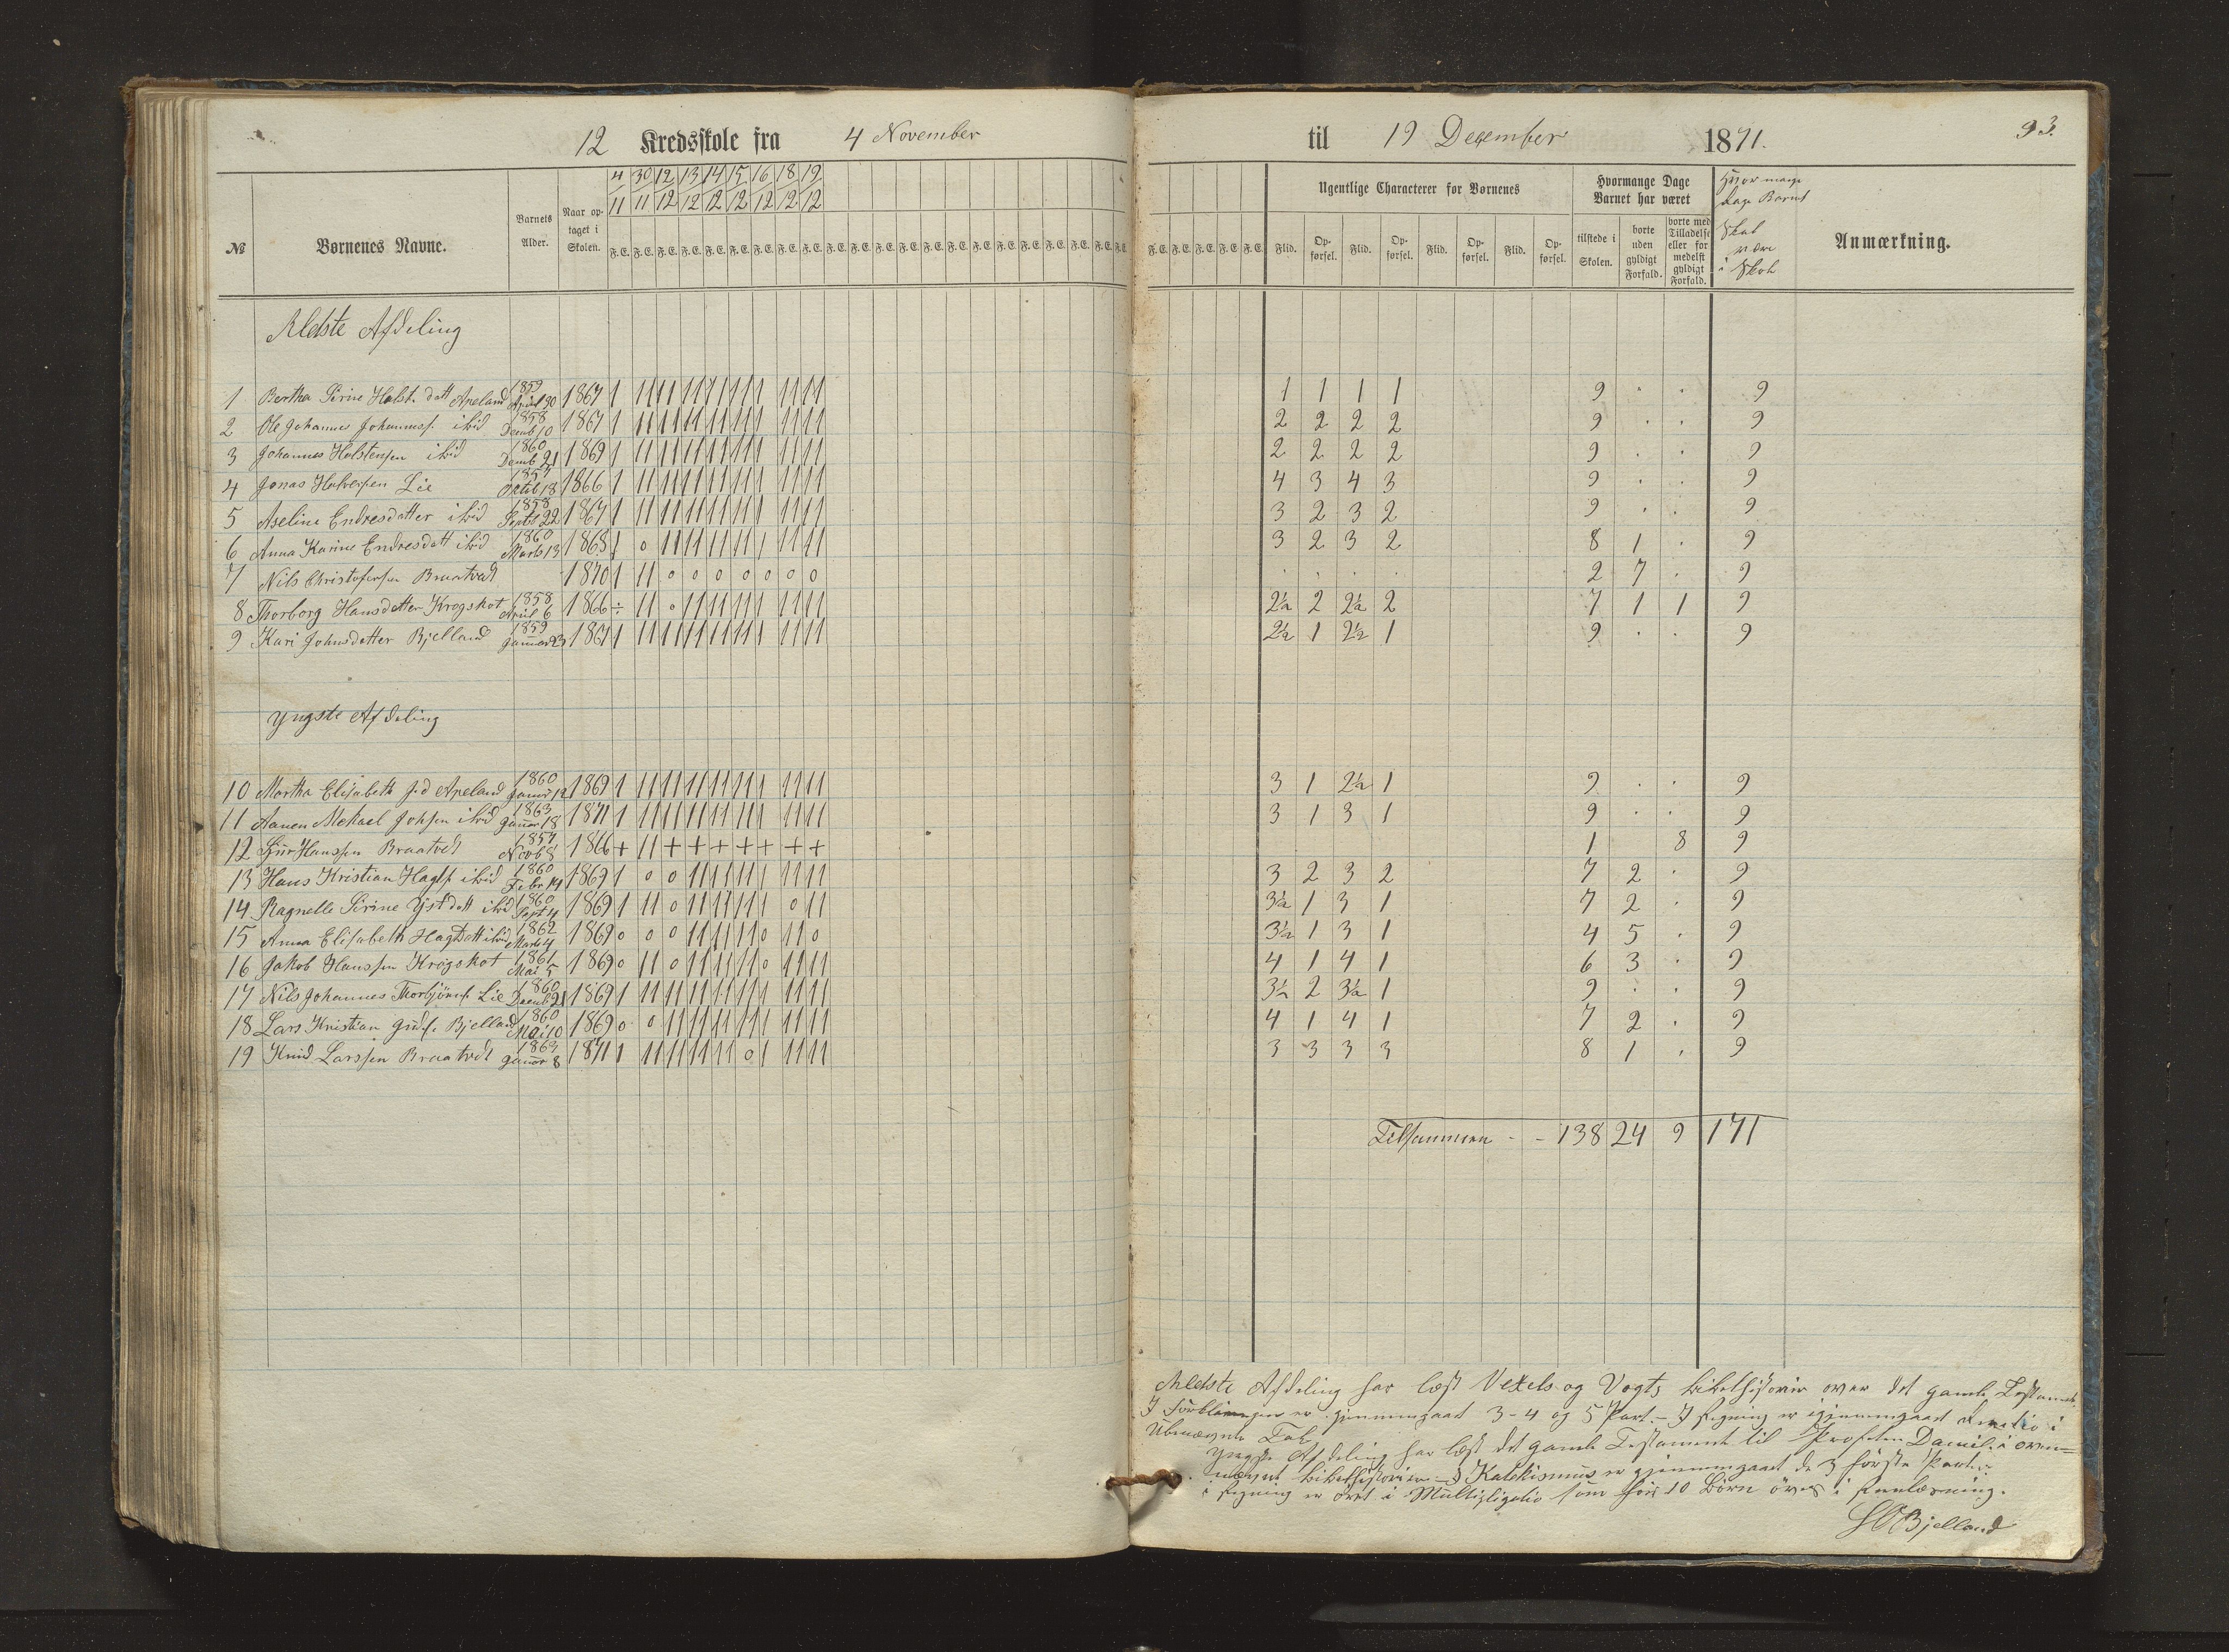 12 Kredsskole fra 4 November
til 19 Desember 1871.
93.
4/11 30/11 12/12 13/12 14/12 15/12 16/12 18/12 19/12
№ Børnenes Navne. Barnets Alder. Naar optaget i Skolen. F. E. F. E. F. E. F. E. F. E. F. E. F. E. F. E. F. E.
Ugentlige Characterer for Børnenes
Flid. Opførsel. Flid. Opførsel. Flid. Opførsel. Flid. Opførsel.
Hvormange Dage Barnet har været
tilstede i Skolen. borte uden gyldigt Forfald. borte med Tilladelse eller for medelst gyldigt Forfald.
Hvor mange Dage Barnet Skal være i Skole
Anmærkning.
Ældste Afdeling
1 Bertha Serine Holst. datt Apeland 1859 April 30 1867 1 11 11 11 11 11 1 11 11 1 1 1 1 9 . . 9
2 Ole Johannes Johanness. ibid 1858 Decmb 10 1867 1 11 11 11 11 11 1 11 11 2 2 2 2 9 . . 9
3 Johannes Holstensen ibid 1860 Decmb 21 1869 1 11 11 11 11 11 1 11 11 2 2 2 2 9 . . 9
4 Jonas Halversen Lie 1857 Oktb 18 1866 1 11 11 11 11 11 1 11 11 4 3 4 3 9 . . 9
5 Aseline Endresdatter ibid 1858 Septb 22 1867 1 11 11 11 11 11 1 11 11 3 2 3 2 9 . . 9
6 Anna Karine Endresdatt ibid 1860 Marts 13 1868 1 0 11 11 11 11 1 11 11 3 2 3 2 8 1 . 9
7 Nils Christofersen Braatvedt 1870 1 11 0 0 0 0 0 0 0 . . . . 2 7 . 9
8 Thorborg Hansdatter Krogskot 1858 April 6 1866 ÷ 11 0 11 11 11 1 11 11 2½ 2 2½ 2 7 1 1 9
9 Kari Johnsdatter Bjelland 1859 Januar 23 1867 1 11 11 11 11 11 1 11 11 2½ 1 2½ 1 9 . . 9
Yngste Afdeling
10 Martha Elisabeth J.d Apeland 1860 Januar 12 1869 1 11 11 11 11 11 1 11 11 3 1 2½ 1 9 . . 9
11 Aanen Mekael Johsen ibid 1863 Januar 18 1871 1 11 11 11 11 11 1 11 11 3 1 3 1 9 . . 9
12 Hanssen Braatvedt 1857 Novb 8 1866 + 11 + + + + + + + 1 8 9
13 Hans Kristian Hagts. ibid 1860 Febr 14 1869 1 0 0 11 11 11 1 11 11 3 2 3 2 7 2 . 9
14 Ragnelle Serine datt ibid 1860 Sept 4 1869 1 11 0 11 11 11 1 0 11 3½ 1 3 1 7 2 . 9
15 Anna Elisabeth Hagtdatt ibid 1862 Marts 4 1869 0 0 0 11 11 11 0 11 0 3½ 1 3 1 4 5 . 9
16 Jakob Hanssen Krogskot 1861 Mai 5 1869 0 11 0 11 11 11 0 11 11 4 1 4 1 6 3 . 9
17 Nils Johannes Thorbjörns. Lie 1860 Decmb 21 1869 1 11 11 11 11 11 1 11 11 3½ 2 3½ 1 9 . . 9
18 Lars Kristian Bjelland 1860 Mai 10 1869 0 0 11 11 11 11 1 11 11 4 1 4 1 7 2 . 9
19 Knud Larssen Braatvedt 1863 Januar 8 1871 1 11 11 11 11 0 1 11 11 3 3 3 3 8 1 . 9
Tilsammen - - 138 24 9 171
Ældste Afdeling har læst Vexels og Vogts bibelhistorie over det gamle Testament.
I Forklaringen er gjennemgaaet 3-4 og 5 Part. - I Regning er igjennemgaaet i
Ubenævnte Tal.
Yngste Afdeling har læst det gamle Testament til Profeten Daniel i oven=
nævnt bibelhistorier - I Katekismus er gjennemgaaet de 3 første Parter.
i Regning er øvet i Multipligatio som for 10 Børn øves i Renlæsning.
Bjelland